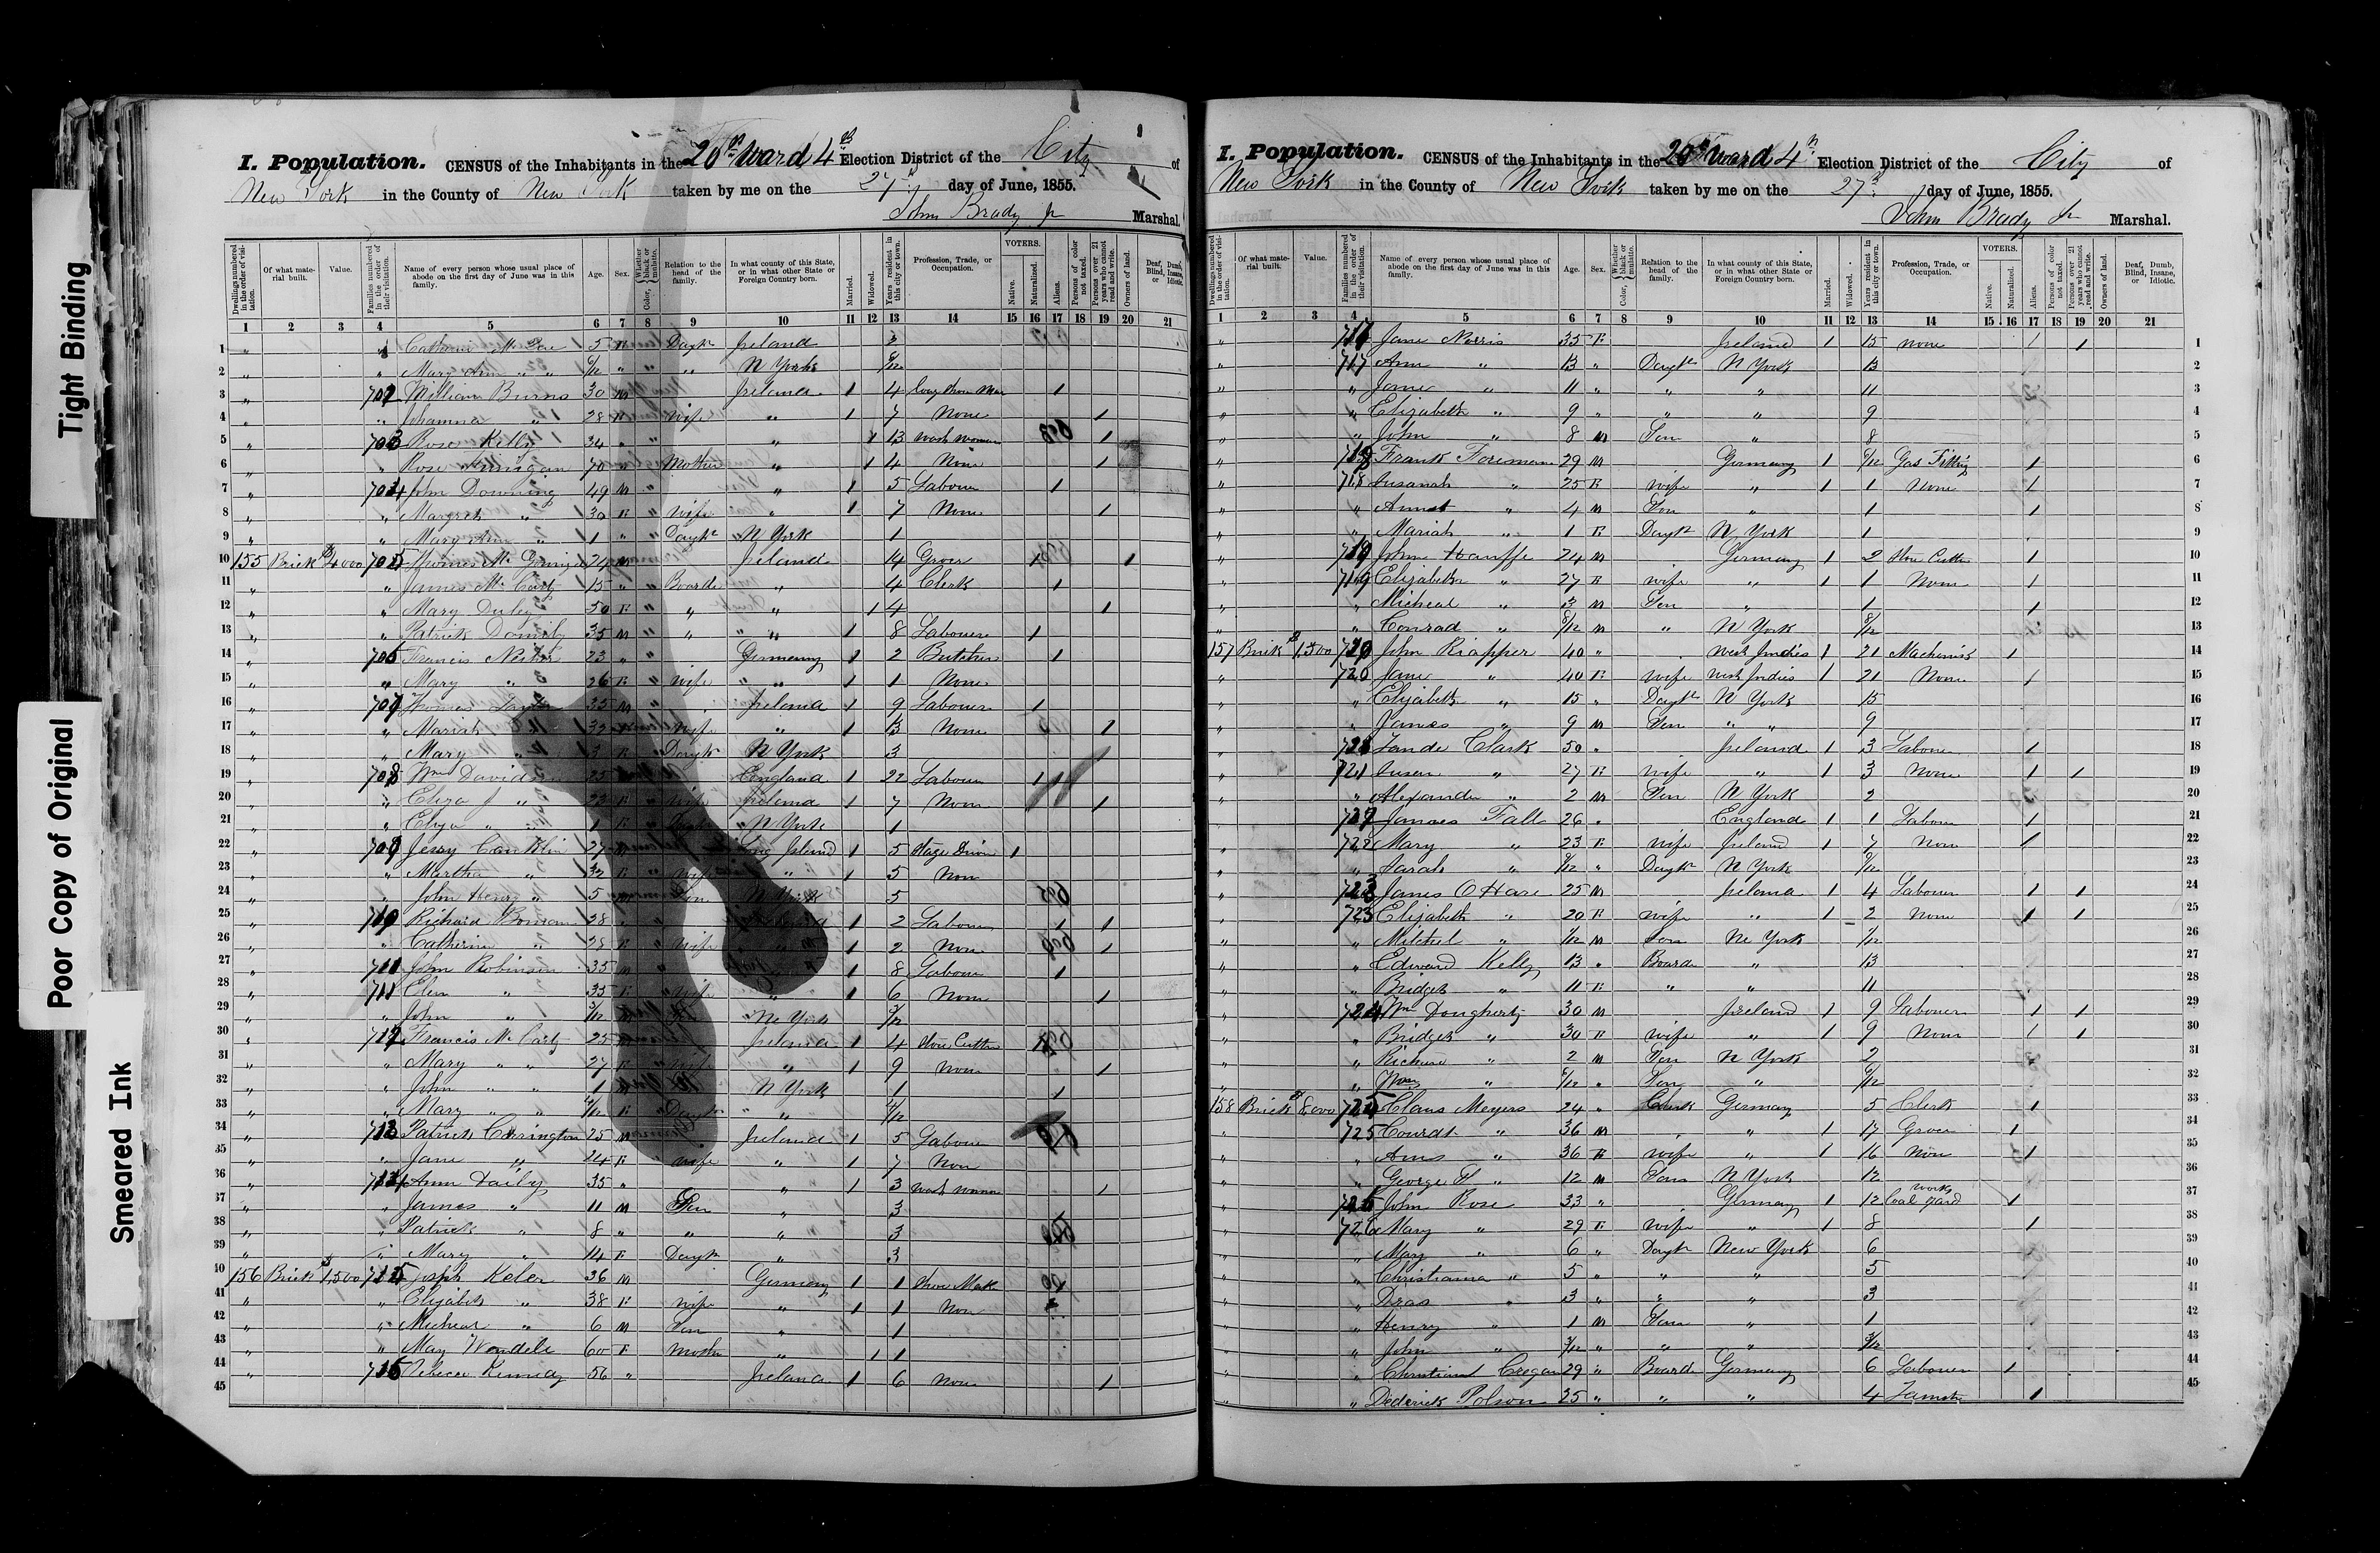 Tight Binding
Poor Copy of Original
Smeared Ink
I. Population. CENSUS of the Inhabitants in the 20th Ward 4th Election District of the City of
New York in the County of New York taken by me on the 27th day of June, 1855.
John Brady Jr Marshal.
Dwellings numbered in the order of visitation. Of what material built. Value. Families numbered in the order of their visitation. Name of every person whose usual place of abode on the first day of June was in this family. Age. Sex. Color, Whether black or mulatto. Relation to the head of the family. In what county of this State, or in what other State or Foreign Country born. Married. Widowed. Years resident in this city or town. Profession, Trade, or Occupation. VOTERS. Native. Naturalized. Aliens. Persons of color not taxed. Persons over 21 years who cannot read and write. Owners of land. Deaf, Dumb, Blind, Insane, or Idiotic.
1 2 3 4 5 6 7 8 9 10 11 12 13 14 15 16 17 18 19 20 21
1 " " Catharine 5 F Daughr Ireland 3
2 " " Mary Ann " " 6/12 " " " N York 6/12
3 " 702 William Burns 30 M Ireland 1 4 1
4 " " Johanna " 28 F " wife " 1 7 None 1
5 " 703 Rose Kelly 34 " " " 1 13 wash woman 1
6 " " Rose 70 " " Mother " 1 4 None 1
7 " 704 John Downing 49 M " " 1 5 Labour 1
8 " " Margret " 30 F " wife " 1 7 None 1
9 " " Mary Ann " 1 " " Daughr N York 1
10 155 Brick $4000 705 Thomas 24 M Ireland 14 Grocer 1 1
11 " " James Mc Carty 15 " " Boarder " 4 Clerk 1
12 " " Mary 50 F " " " 1 4 1
13 " " Patrick 35 M " " " 1 8 Labourer 1
14 " 706 Francis 23 " " Germany 1 2 Butcher 1
15 " " Mary " 26 F " wife " 1 1 None
16 " 707 Thomas 35 M " Ireland 1 9 Labourer 1
17 " " Mariah wife " 1 13 None 1
18 " " Mary " 3 F " Daughr N York 3
19 " 708 Wm Davidson 25 England 1 22 Labour 1
20 " " Eliza J " 23 F " wife Ireland 1 7 None 1
21 " " Eliza " 1 F " N York 1
22 " 709 Jessy Conklin 27 Long Island 1 5 Stage Driver 1
23 " " Martha " 32 F " wife " 1 5 Non
24 " " John Henry " 5 Son N York 5
25 " 710 Richard 28 1 2 Labour 1 1
26 " " Catherine " 28 F " wife " 1 2 Non 1
27 " 711 John Robinson 35 M " 1 8 Labour 1
28 " 711 Elen " 35 F " wife " 1 6 None 1
29 " " John " 3/12 Son Ne York 3/12
30 " 712 Francis Mc Carty 25 Ireland 1 4 Stone Cutter
31 " " Mary " " 27 F " wife " 1 9 Non 1
32 " " John " " 1 N York 1 1
33 " " Mary " " 4/12 F " Daughr " 4/12
34 " 713 Patrick Carrington 25 M Ireland 1 5 Labour
35 " " Jane " 24 F wife " 1 7 Non
36 " 714 Ann Daily 35 " " 1 3 wash woman 1
37 " " James " 11 M Son " 3
38 " " Patrick " 8 " " " 3
39 " " Mary " 14 F Daughr " 3
40 156 Brick $1,500 715 Joseph Keler 36 M Germany 1 1 Shoe Maker
41 " " Elizabeth " 38 F wife " 1 1 Non
42 " " Micheal " 6 M Son " 1
43 " " Mary 60 F Mother " 1 1
44 " 716 Rebecca Kennedy 56 " Ireland 1 6 Non 1
45
I. Population. CENSUS of the Inhabitants in the 20th Ward 4th Election District of the City of
New York in the County of New York taken by me on the 27th day of June, 1855.
John Brady Jr Marshal.
Dwellings numbered in the order of visitation. Of what material built. Value. Families numbered in the order of their visitation. Name of every person whose usual place of abode on the first day of June was in this family. Age. Sex. Color, Whether black or mulatto. Relation to the head of the family. In what county of this State, or in what other State or Foreign Country born. Married. Widowed. Years resident in this city or town. Profession, Trade, or Occupation. VOTERS. Native. Naturalized. Aliens. Persons of color not taxed. Persons over 21 years who cannot read and write. Owners of land. Deaf, Dumb, Blind, Insane, or Idiotic.
1 2 3 4 5 6 7 8 9 10 11 12 13 14 15 16 17 18 19 20 21
" 717 Jane Norris 35 F Ireland 1 15 none 1 1 1
" 717 Ann " 13 " Daughtr N York 13 2
" " Jane " 11 " " " 11 3
" " Elizabeth " 9 " " " 9 4
" " John " 8 M Son " 8 5
" 718 Frank Foreman 29 M Germany 1 6/12 Gas Fitting 1 6
" 718 Susanah " 25 F wife " 1 1 None 1 7
" " " 4 M Son " 1 1 8
" " Mariah " 1 F Daughtr N York 1 9
" 719 John Hauffe 24 M Germany 1 2 Stone Cutter 1 10
" 719 Elizabeth " 27 F wife " 1 1 None 1 11
" " Micheal " 3 M Son " 1 1 12
" " Conrad " 8/12 M " N York 8/12 13
157 Brick $1,500 720 John Riapper 40 " West Indies 1 21 Machinist 1 14
" 720 Jane " 40 F wife West Indies 1 21 None 1 15
" " Elizabeth " 15 " Daughtr N York 15 16
" " James " 9 M Son " " 9 17
" 721 Clark 50 " Ireland 1 3 Labour 1 18
" 721 Susan " 27 F wife " 1 3 None 1 1 19
" " Alexander " 2 M Son N York 2 20
" 722 James Fall 26 " England 1 1 Labour 1 21
" 722 Mary " 23 F wife Ireland 1 7 Non 1 22
" " Sarah " 9/12 " Daughtr N York 9/12 23
" 723 James O Hare 25 M Ireland 1 4 Labourer 1 1 24
" 723 Elizabeth " 20 F wife " 1 2 None 1 1 25
" " Mitchel " 1/12 M Son Ne York 1/12 26
" " Edward Kelly 13 " Boarder " 13 27
" " Bridget " 11 F " " 11 28
" 724 Wm Dougherty 30 M Ireland 1 9 Labourer 1 1 29
" " Bridget " 30 F wife " 1 9 None 1 1 30
" " Richard " 2 M Son N York 2 31
" " Wm " 6/12 " Son " 6/12 32
158 Brick $8,000 725 Claus Meyers 24 " Clerk Germany 5 Clerk 1 33
" 725 Courdt " 36 M " 1 17 Grocer 1 34
" " " 36 F wife " 1 16 Non 1 35
" " George " 12 M Son N York 12 36
" 726 John Rose 33 " Germany 1 12 works Coal Yard 1 37
" 726 Mary " 29 F wife " 1 8 1 38
" " Mary " 6 " Daughtr New York 6 39
" " Christianna " 5 " " " 5 40
" " " 3 " " " 3 41
" " Henry " 1 M Son " 1 42
" " John " 3/12 " " " 3/12 43
" " Christiant Cregan 29 " Boarder Germany 6 Labourer 1 44
" " Dederick Polson 25 " " " 4 1 45